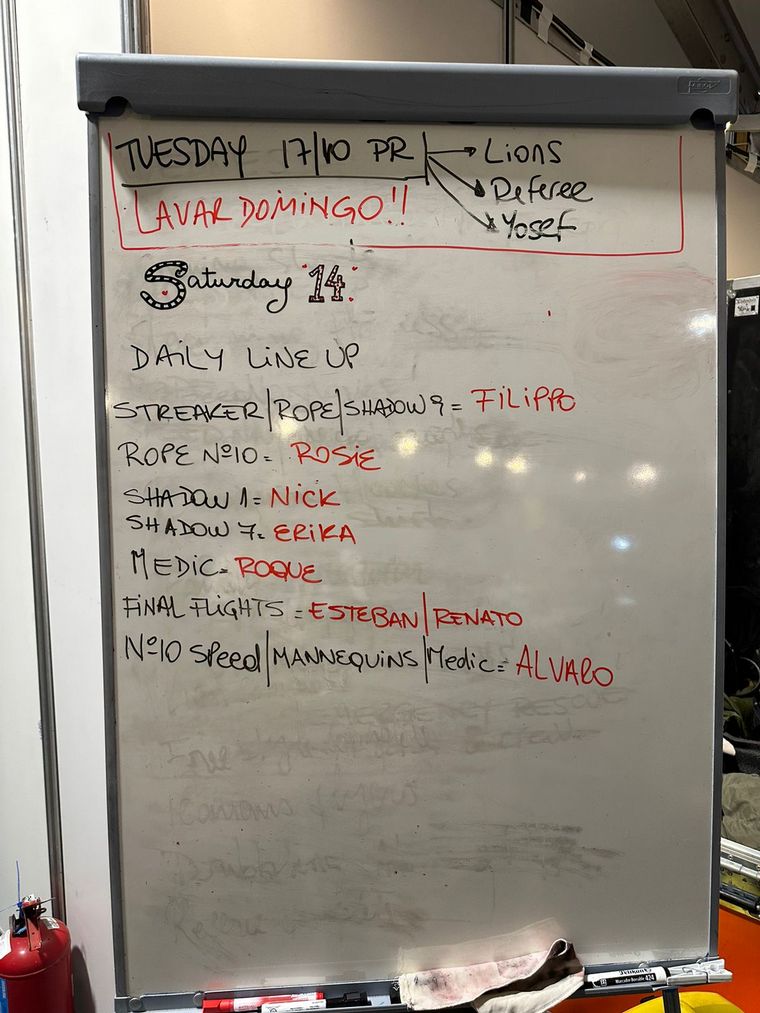 TUESDAY 17/10 PR → Lions
Referee
Yosef
LAVAR DOMINGO!!
Saturday 14
DAILY LINE UP
STREAKER/ROPE/SHADOW 9 = FILIPPO
ROPE Nº10 = ROSIE
SHADOW 1 = NICK
SHADOW 7 = ERIKA
MEDIC = ROQUE
FINAL FLIGHTS = ESTEBAN/RENATO
Nº10 Speed/MANNEQUINS/Medic = ALVARO
EMERGENCY RESCUE
Pelikan
Marcador Borrable 424